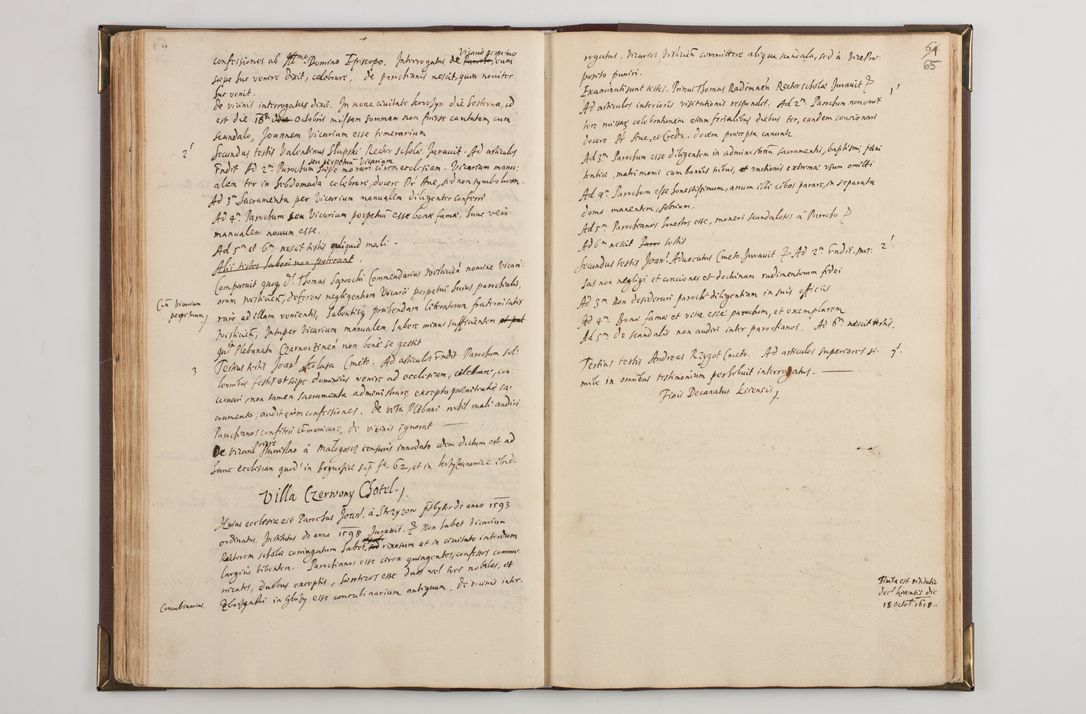 confessiones ab Illmo Domino Episcopo. Interrogatus de Vicario perpetuo eum
saepe huc venire dixit, celebrare, de parochianis nescit, quum noviter
huc venit.
De vicinis interrogatus dixit. In nova civitate heroSyn die hesterna, id
est die 16a Octobris missam summam non fuisse cantatam, cum
scandalo, Joannem Vicarium esse temerarium
2! Secundus testis Valentinus Słupski Rector scholae Juravit. Ad articulos
Endit Ad 2m Parochum seu perpetuum Vicarium saepe morari circa ecclesiam. Vicarium manu=
alem ter in hebdomada celebrare, docere Pr Ave, sed non symbolum.
Ad 3m Sacramenta per Vicarium manualem diligenter conferri
Ad 4m Parochum seu Vicarium perpetuum esse bonae famae, hunc vero
manualem novum esse.
Ad 5m et 6m nescit testis quidquid mali.
Alii testes haberi non potuerunt.
Comparuit quoque D. Thomas Saprochi Commendarius nomine Vicari=
Con Vicarium
perpetuum
orum, deferens negligentiam Vicarii perpetui huius parochialis,
raro ad illam venientis, habentis, praebendam literatorum fraternitatis
Insuper Vicarium manualem habere minus sufficientem
qui in Plebanatu Czarnocinen non bene se gessit
3 Tertius testis Joan! Kalusa Cmeto. Ad articulos Endit. Parochum sol=
lennibus festis et saepe dominicis venire ad ecclesiam, celebrare, con=
cionari, non tamen sacramenta administrare, excepto poenitentiae sa=
cramento, audit enim confessiones. De vita Plebani nihil mali audivi
Parochianos confiteri communicare, de vicinis ignorat
De vicino Stanislao à Małogosez censuris innodato idem dictum est ad
hanc ecclesiam quod in fo. 62, et in ibid.
Villa Czerwony Chotel.
Huius ecclesiae est Parochus Joan! à Strzyzow pbyter de anno 1593
ordinatus. Institutus de anno 1598 Juravit. Non habet Vicarium
Rectorem scholae coniugatum habet, rixosum et in civitate interdum
largius bibentem. Parochianos esse circa quingentos, confessos commu=
nicatos, duobus exceptis, haereticos esse duos vel tres nobiles, et
Concubinarius.
in Głuzy esse concubinarium antiquum. De vicinis inter=
64
65
rogatus. Vicarios committere aliqua scandala, sed à Vice Prae=
posito puniri.
Examinati sunt testes. Primus Thomas Radimnen Rector scholae Juravit
1!
Ad articulos interioris visitationis respondet. Ad 2m Parochum
missas celebrantem etiam ferialibus diebus ter, eundem concionari
docere Pr Ave, et Credo. Decem praecepta canunt
Ad 3m Parochum esse diligentem in administran sacramenti, baptismi, paeni
tentiae, matrimonii cum bannis tribus, et unctionis extremae usum omitti
Ad 4m Parochum esse honestissimum, anum illi cibos parare, in separata
domo manentem, sobrium.
Ad 5m Parochianos honestos esse, moneri scandalosos à Parocho
Ad 6m nescit testis
Secundus testis Joan! Advocatus Cmeto, Juravit Ad 2m Endit. mis= 2!
sas non negligi et conciones et doctrinam rudimentorum fidei
Ad 3m Non desiderari parochi diligentiam in suis officiis
Ad 4m Bonae famae et vitae esse parochum, et exemplarem
Ad 5m De scandalis non audivi inter parochianos. Ad 6m nescit testis.
Tertius testis Andreas Rzygot Cmeto. Ad articulos superiores si= 3!
mile in omnibus testimonium perhibuit interrogatus.
Finis Decanatus Kirensis
Finita est visitatio
Dectus Kerensis die
18 Octob! 1618.